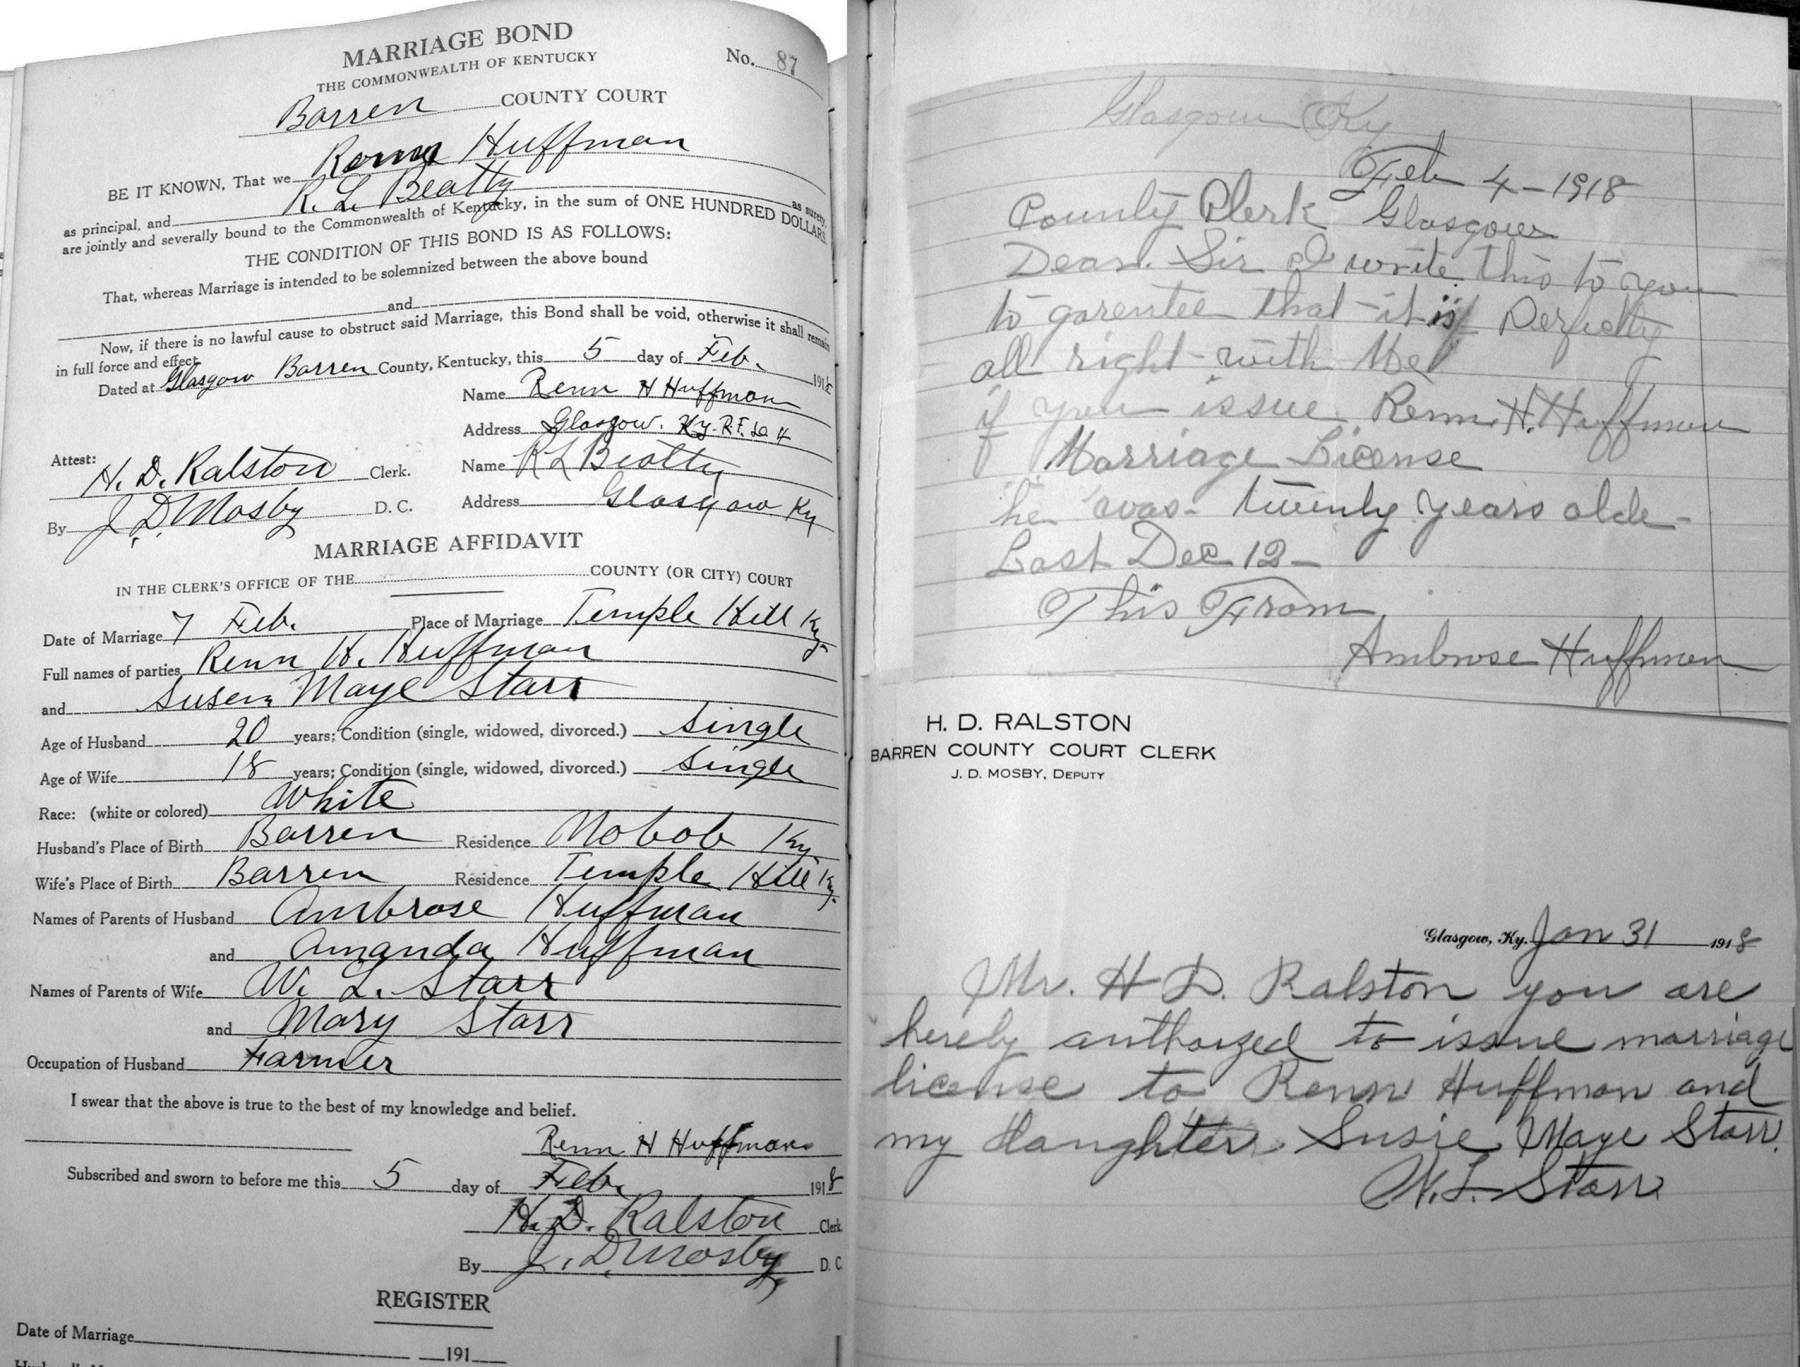 MARRIAGE BOND
THE COMMONWEALTH OF KENTUCKY
No. 87
Barren COUNTY COURT
BE IT KNOWN, That we Renn Huffman
as principal, and R. L. Beatty as surety,
are jointly and severally bound to the Commonwealth of Kentucky, in the sum of ONE HUNDRED DOLLARS.
THE CONDITION OF THIS BOND IS AS FOLLOWS:
That, whereas Marriage is intended to be solemnized between the above bound
and
Now, if there is no lawful cause to obstruct said Marriage, this Bond shall be void, otherwise it shall remain
in full force and effect.
Dated at Glasgow Barren County, Kentucky, this 5 day of Feb. 1918
Name Renn H Huffman
Address Glasgow. Ky. R.F.D. 4
Attest:
H. D. Ralston Clerk.
Name R L Beatty
By J. D. Mosby D. C.
Address Glasgow Ky
MARRIAGE AFFIDAVIT
IN THE CLERK'S OFFICE OF THE COUNTY (OR CITY) COURT
Date of Marriage 7 Feb. Place of Marriage Temple Hill Ky
Full names of parties Renn H. Huffman
and Susen Maye Starr
Age of Husband 20 years; Condition (single, widowed, divorced.) Single
Age of Wife 18 years; Condition (single, widowed, divorced.) Single
Race: (white or colored) White
Husband's Place of Birth Barren Residence Nobob Ky.
Wife's Place of Birth Barren Residence Temple Hill Ky.
Names of Parents of Husband Ambrose Huffman
and Amanda Huffman
Names of Parents of Wife W. L. Starr
and Mary Starr
Occupation of Husband Farmer
I swear that the above is true to the best of my knowledge and belief.
Renn H Huffman
Subscribed and sworn to before me this 5 day of Feb. 1918
H. D. Ralston Clerk
By J. D. Mosby D. C.
REGISTER
Date of Marriage 191
Glasgow Ky
Feb 4-1918
County Clerk Glasgow
Dear. Sir I write this to you
to garentee that it is Perfectty
all right with Me
if you issue Renn. H. Huffman
Marriage License
he was twenty years olde-
Last Dec 12-
This From
Ambrose Huffman
H. D. RALSTON
BARREN COUNTY COURT CLERK
J. D. MOSBY, DEPUTY
Glasgow, Ky. Jan 31 1918
Mr. H D. Ralston you are
herely authorzed to issue marriage
license to Renn Huffman and
my daughter Susie Maye Starr.
W. L. Starr